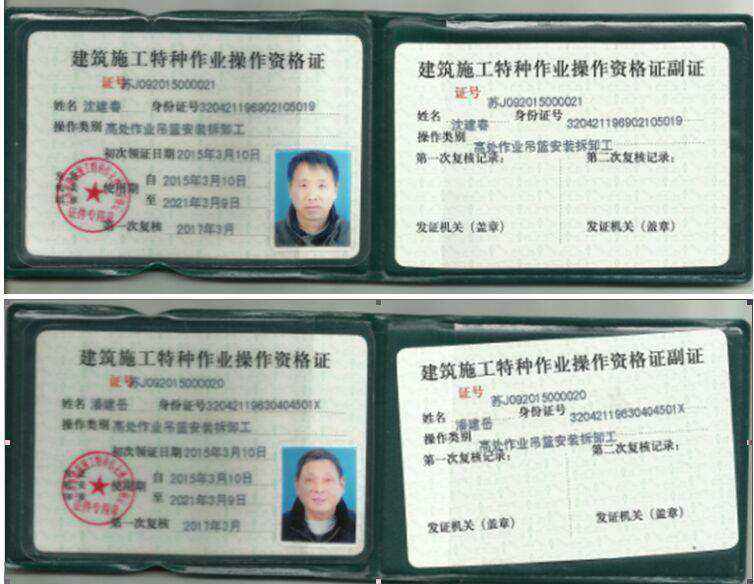 建筑施工特种作业操作资格证
证号 苏J092015000021
姓名 沈建春 身份证号320421196902105019
操作类别 高处作业吊篮安装拆卸工
初次领证日期 2015年3月10日
使用期 自 2015年3月10日
至 2021年3月9日
第一次复核 2017年3月
证件专用章
建筑施工特种作业操作资格证副证
证号 苏J092015000021
姓名 沈建春 身份证号 320421196902105019
操作类别 高处作业吊篮安装拆卸工
第一次复核记录： 第二次复核记录：
发证机关（盖章） 发证机关（盖章）
建筑施工特种作业操作资格证
证号 苏J092015000020
姓名 潘建岳 身份证号32042119630404501X
操作类别 高处作业吊篮安装拆卸工
初次领证日期 2015年3月10日
使用期 自 2015年3月10日
至 2021年3月9日
第一次复核 2017年3月
证件专用章
建筑施工特种作业操作资格证副证
证号 苏J092015000020
姓名 潘建岳 身份证号 32042119630404501X
操作类别 高处作业吊篮安装拆卸工
第一次复核记录： 第二次复核记录：
发证机关（盖章） 发证机关（盖章）